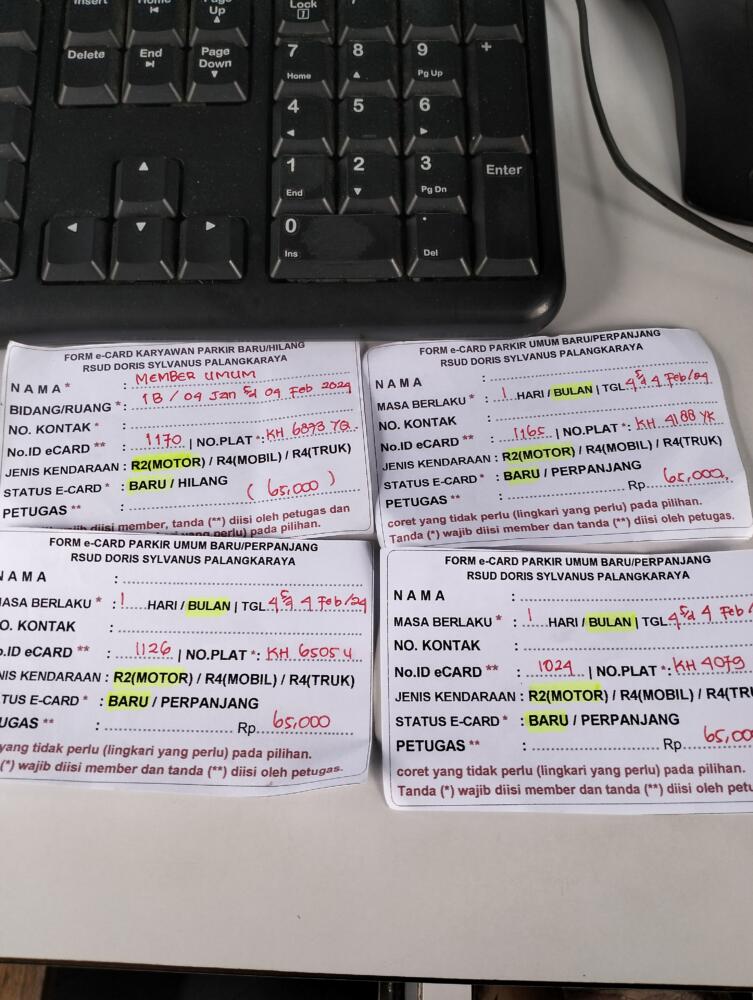 Insert Home Page Up
Lock
Delete End Page Down
7 Home 8 9 Pg Up +
4 5 6
1 End 2 3 Pg Dn Enter
0 Ins . Del
FORM e-CARD KARYAWAN PARKIR BARU/HILANG
RSUD DORIS SYLVANUS PALANGKARAYA
NAMA * : MEMBER UMUM
BIDANG/RUANG * : 1B / 04 Jan s/d 04 Feb 2024
NO. KONTAK * :
No.ID eCARD ** : 1170 | NO.PLAT * : KH 6893 YQ
JENIS KENDARAAN : R2(MOTOR) / R4(MOBIL) / R4(TRUK)
STATUS E-CARD * : BARU / HILANG
PETUGAS ** : (65,000)
diisi member, tanda (**) diisi oleh petugas dan
yang perlu) pada pilihan.
FORM e-CARD PARKIR UMUM BARU/PERPANJANG
RSUD DORIS SYLVANUS PALANGKARAYA
NAMA :
MASA BERLAKU * : 1 HARI / BULAN | TGL 4 s/d 4 Feb/24
NO. KONTAK :
No.ID eCARD ** : 1165 | NO.PLAT * : KH 4188 YK
JENIS KENDARAAN : R2(MOTOR) / R4(MOBIL) / R4(TRUK)
STATUS E-CARD * : BARU / PERPANJANG
PETUGAS ** : Rp 65,000,
coret yang tidak perlu (lingkari yang perlu) pada pilihan.
Tanda (*) wajib diisi member dan tanda (**) diisi oleh petugas.
FORM e-CARD PARKIR UMUM BARU/PERPANJANG
RSUD DORIS SYLVANUS PALANGKARAYA
NAMA :
MASA BERLAKU * : 1 HARI / BULAN | TGL 4 s/d 4 Feb/24
NO. KONTAK :
No.ID eCARD ** : 1126 | NO.PLAT * : KH 6505 U
JENIS KENDARAAN : R2(MOTOR) / R4(MOBIL) / R4(TRUK)
STATUS E-CARD * : BARU / PERPANJANG
PETUGAS ** : Rp 65,000
yang tidak perlu (lingkari yang perlu) pada pilihan.
(*) wajib diisi member dan tanda (**) diisi oleh petugas.
FORM e-CARD PARKIR UMUM BARU/PERPANJANG
RSUD DORIS SYLVANUS PALANGKARAYA
NAMA :
MASA BERLAKU * : 1 HARI / BULAN | TGL 4 s/d 4 Feb/
NO. KONTAK :
No.ID eCARD ** : 1024 | NO.PLAT * : KH 4079
JENIS KENDARAAN : R2(MOTOR) / R4(MOBIL) / R4(TRU
STATUS E-CARD * : BARU / PERPANJANG
PETUGAS ** : Rp 65,00
coret yang tidak perlu (lingkari yang perlu) pada pilihan.
Tanda (*) wajib diisi member dan tanda (**) diisi oleh petu